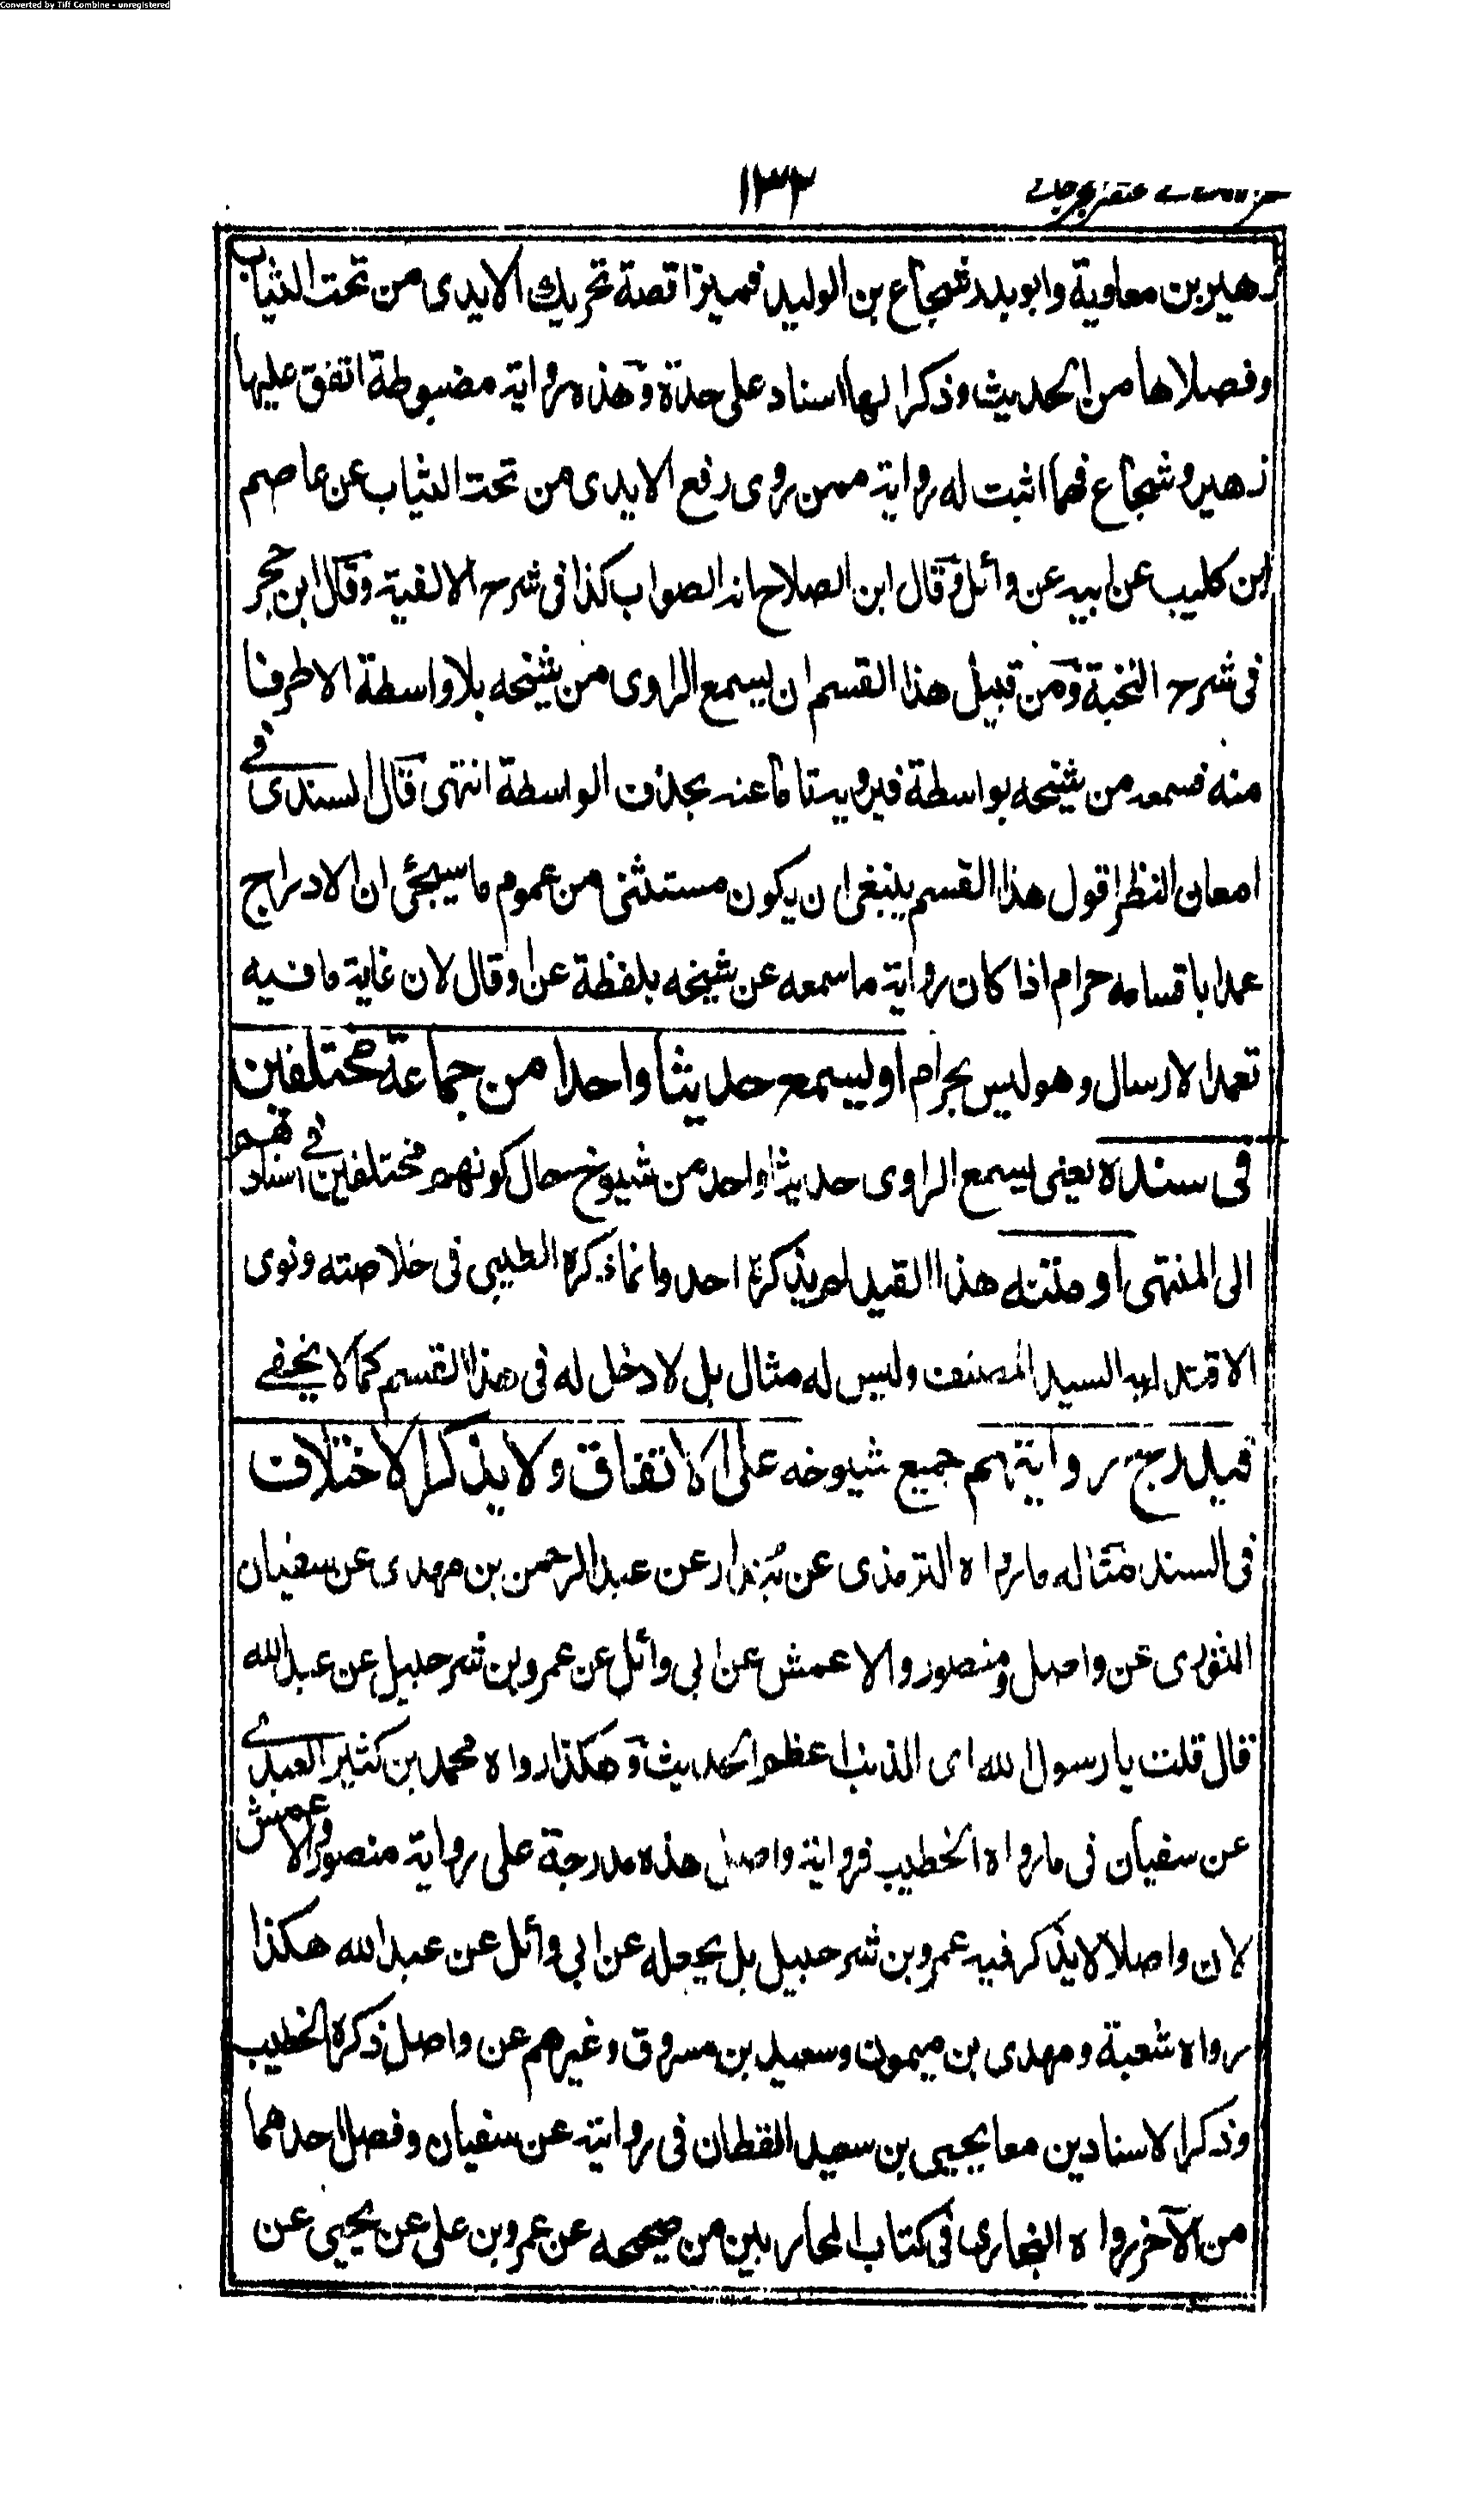 Converted by Tiff Combine - unregistered
١٣٢
زهير بن معاوية وابو بدر شجاع بن الوليد فميزا قصة تحريك الايدى من تحت الثياب
وفصلاها من الحديث وذكرا لها اسناد على حدة وهذه رواية مضبوطة اتفق عليها
زهير وشجاع فهما اثبت له رواية ممن روى رفع الايدى من تحت الثياب عن عاصم
ابن كليب عن ابيه عن وائل وقال ابن الصلاح انه الصواب كذا فى شرح الالفية وقال ابن حجر
فى شرح النخبة ومن قبيل هذا القسم ان يسمع الراوى من شيخه بلا واسطة الا طرفا
منه فسمعه من شيخه بواسطة فيرويه تاما عنه بحذف الواسطة انتهى قال السندى فى
امعان النظر اقول هذا القسم ينبغى ان يكون مستثنى من عموم ما سيجئ ان الادراج
عمدا باقسامه حرام اذا كان رواية ما سمعه عن شيخه بلفظة عن او قال لان غاية ما فيه
تعمد الارسال وهو ليس بحرام او ليسمع حديثا واحدا من جماعة مختلفين
فى سنده يعنى يسمع الراوى حديثا واحد من شيوخ حال كونهم مختلفين فى اسنادهم
الى المنتهى او متنه هذا القيد لم يذكره احد وانما ذكره الطيبى فى خلاصته ونوى
الاقتداء به السيد المصنف وليس له مثال بل لا دخل له فى هذا القسم كما لا يخفے
فيدرج روايتهم جميع شيوخه على الاتفاق ولا يذكر الاختلاف
فى السند مثاله ما رواه الترمذى عن بُندار عن عبد الرحمن بن مهدى عن سفيان
الثورى عن واصل ومنصور والاعمش عن ابى وائل عن عمرو بن شرحبيل عن عبد الله
قال قلت يا رسول الله اى الذنب اعظم الحديث وهكذا رواه محمد بن كثير العبدے
عن سفيان فى ما رواه الخطيب فرواية واصل هذه مدرجة على رواية منصور والاعمش
لان واصلا لا يذكر فيه عمرو بن شرحبيل بل يجعله عن ابى وائل عن عبد الله هكذا
رواه شعبة ومهدى بن ميمون وسعيد بن مسروق وغيرهم عن واصل ذكره الخطيب
وذكر الاسنادين معا يحيى بن سعيد القطان فى روايته عن سفيان وفصل احدهما
من الآخر رواه البخارى فى كتاب المحاربين من صحيحه عن عمرو بن على عن يحيى عن